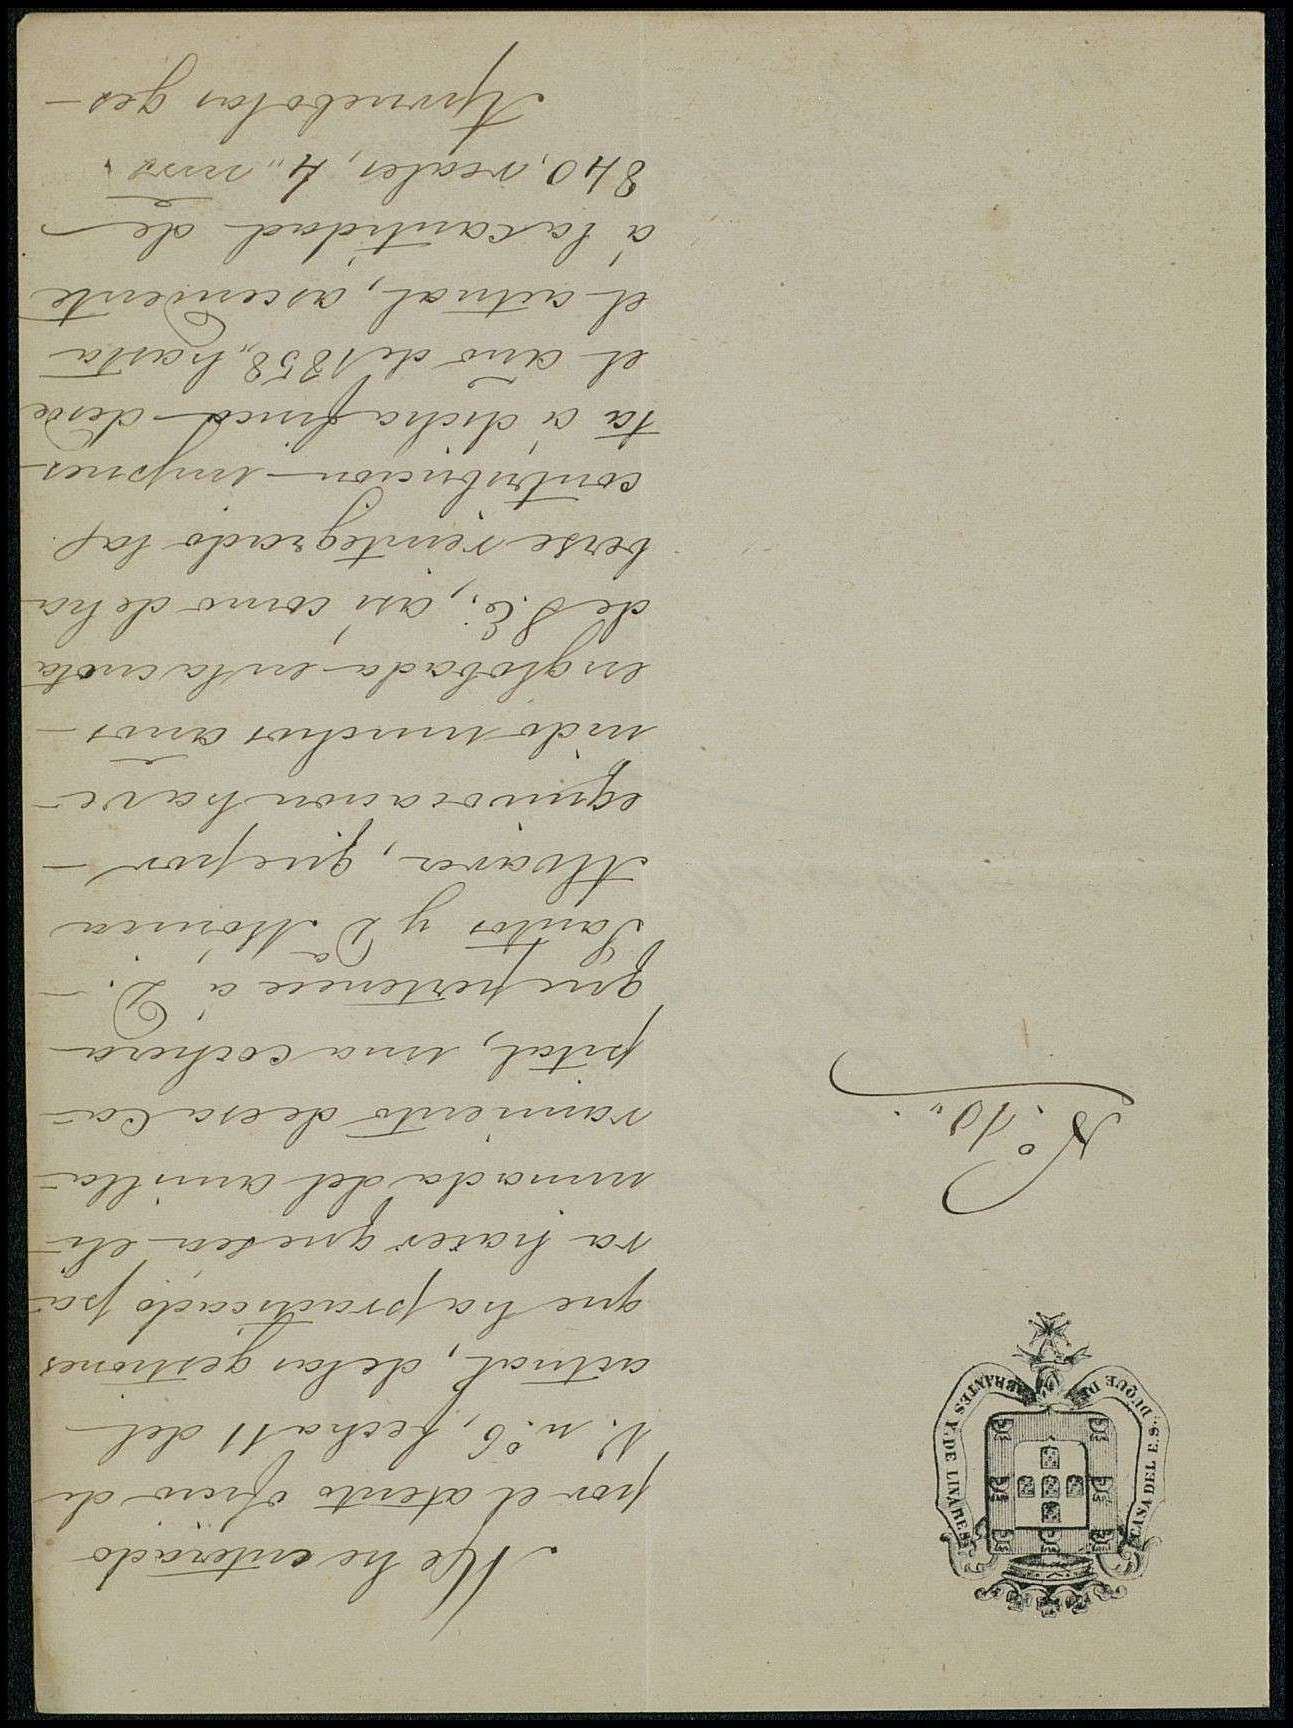 CASA DEL E.S. DUQUE DE ABRANTES Y DE LINARES
N.º 10,,
Me he enterado
por el atento oficio de
V. n.º 6, fecha 11 del
actual, delas gestiones
que ha practicado pa-
ra hacer que sea eli-
minada del amilla-
ramiento de esa Ca-
pital, una cochera
que pertenece á D.-
Santos y Dª Mónica
Alvarez, que por-
equivocacion ha ve-
nido muchos años-
englobada en la cuota
de S.E.; así como de ha-
berse reintegrado la
contribucion impues-
ta á dicha finca desde
el año de 1858,, hasta
el actual, ascendente
á la cantidad de
840, reales, 4,, mrs.
Apruebo las ges-